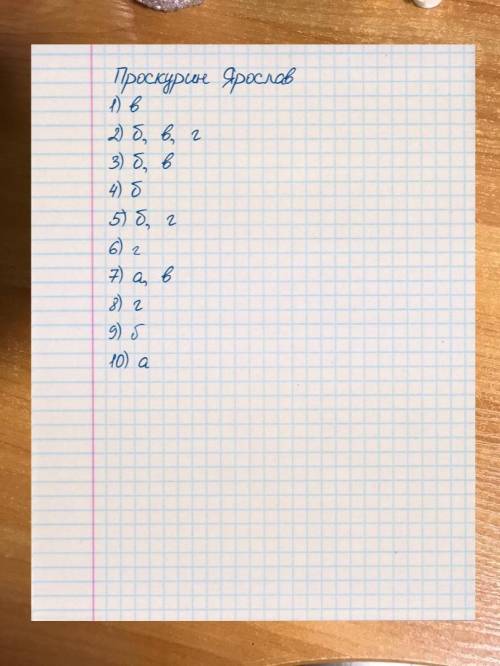 Проскурин Ярослав
1) в
2) б, в, г
3) б, в
4) б
5) б, г
6) г
7) а, в
8) г
9) б
10) а